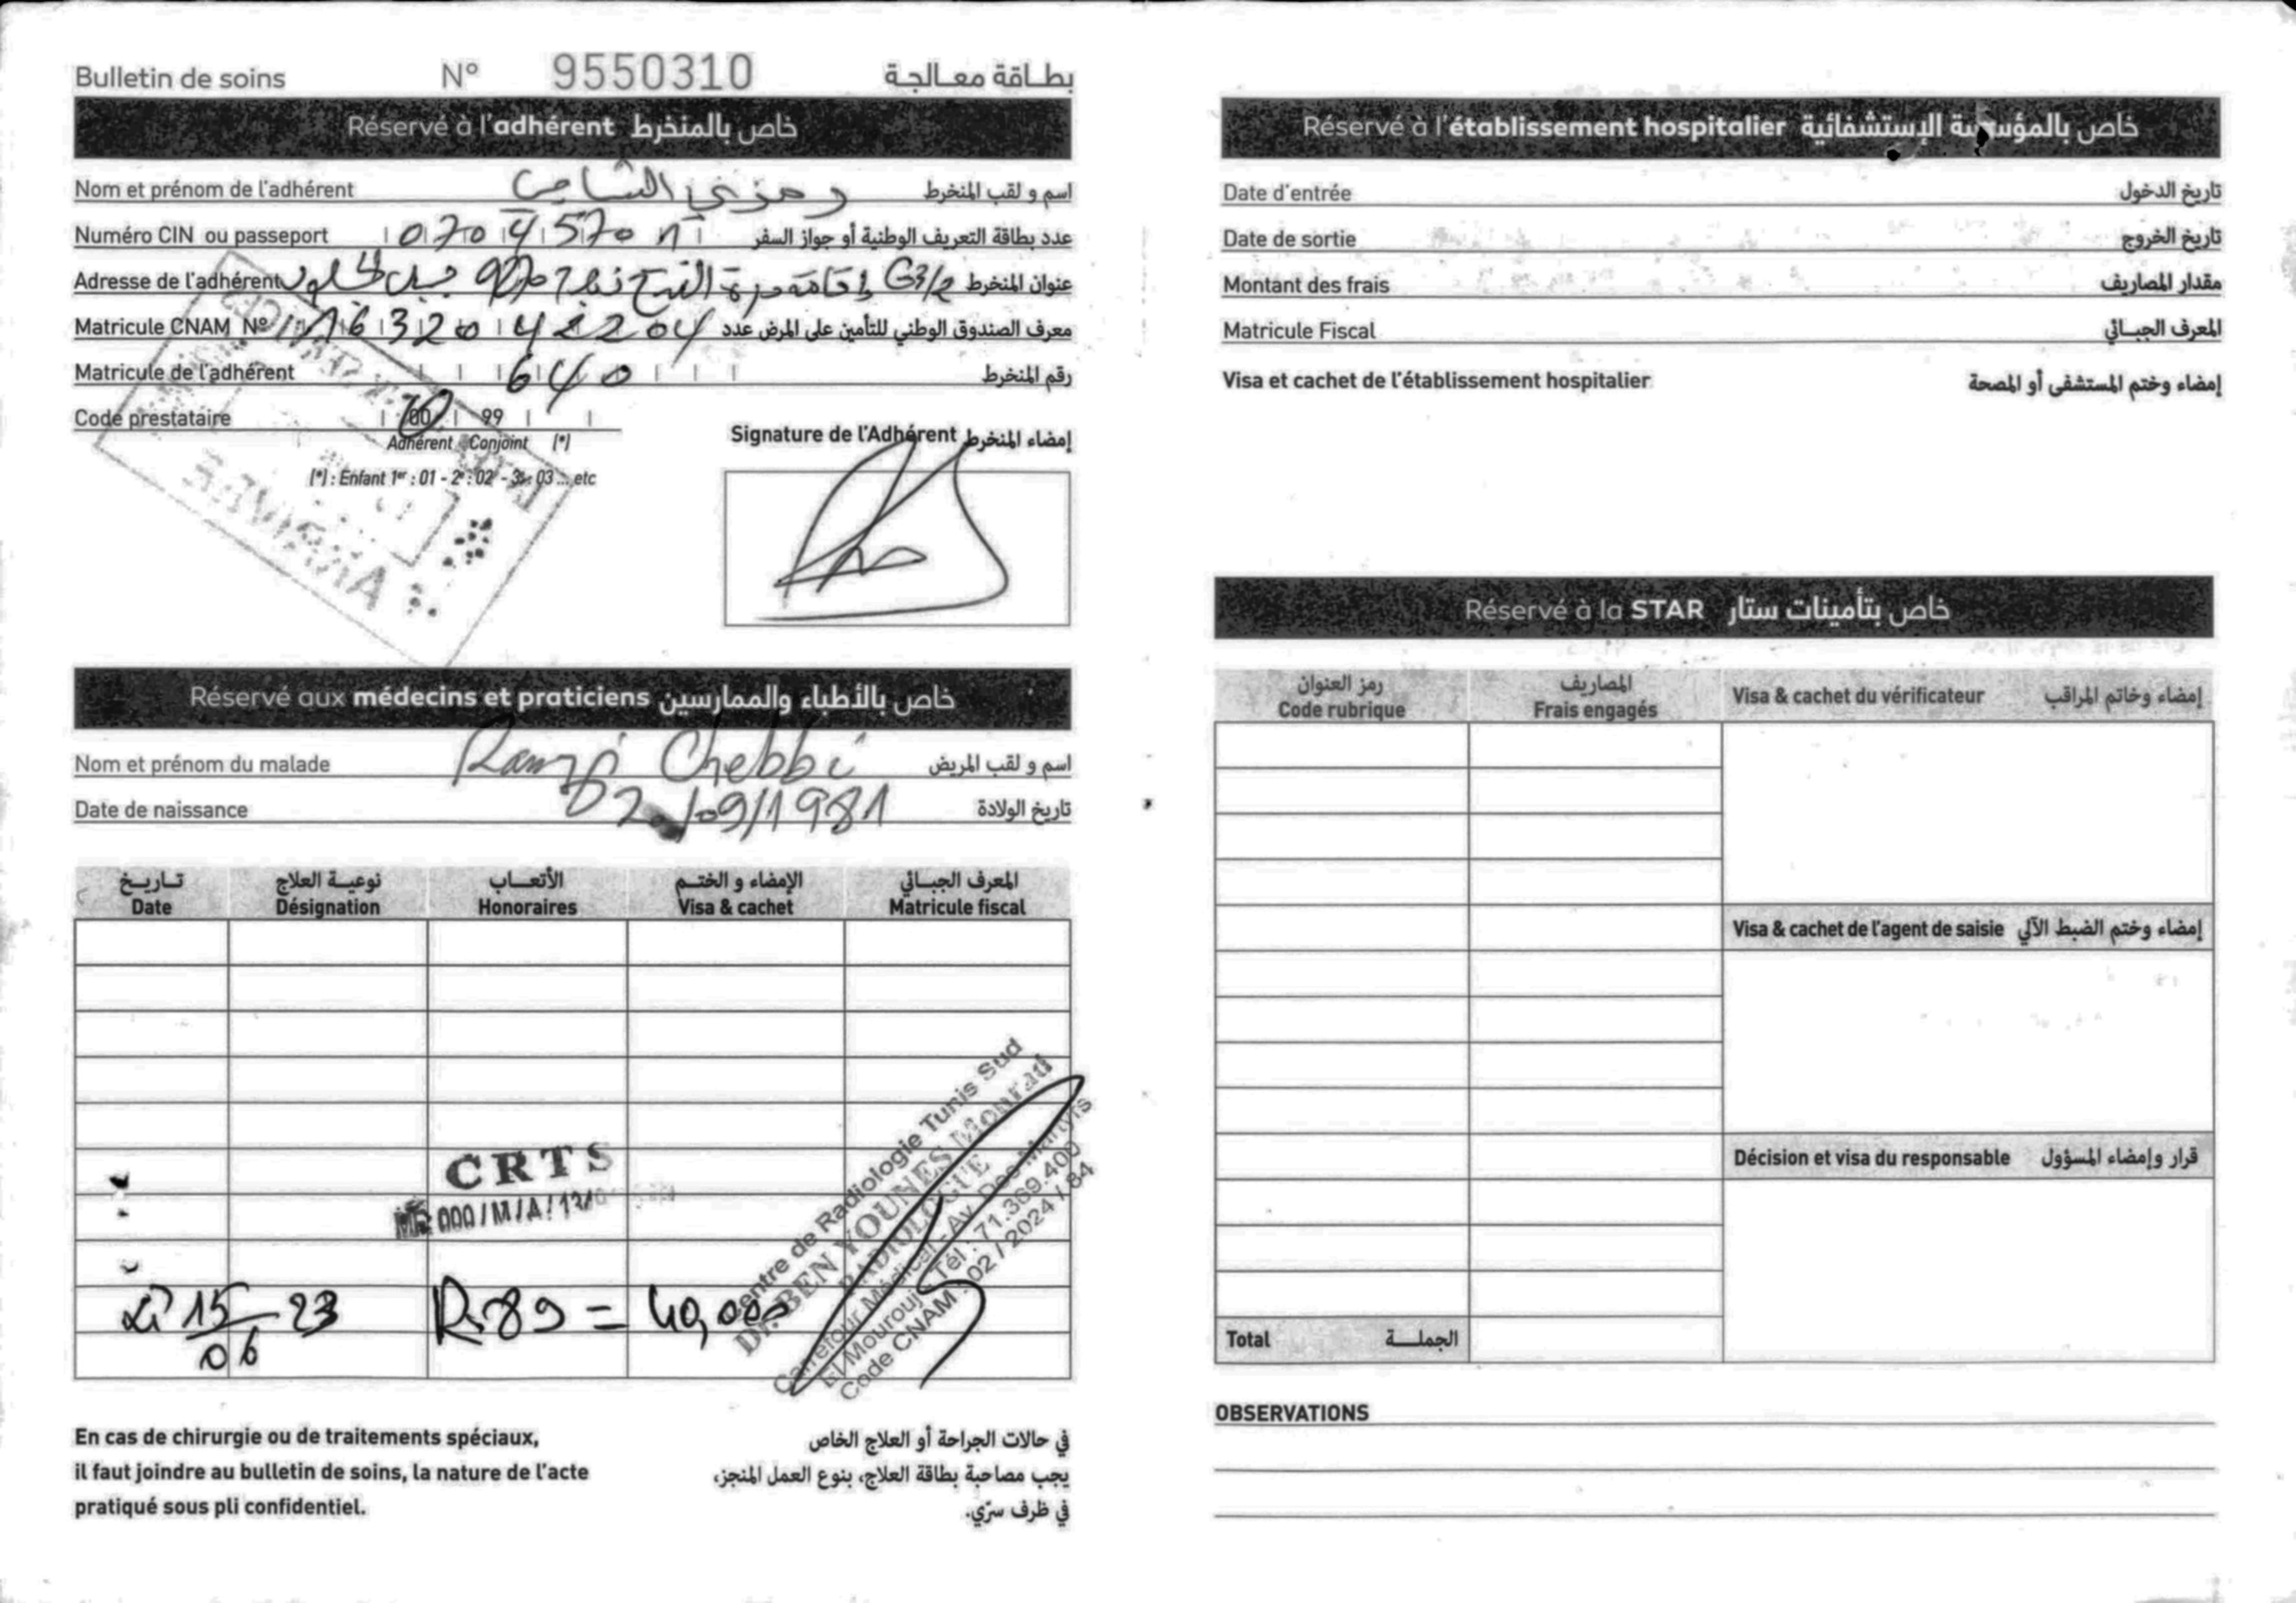 Bulletin de soins N° 9550310 بطاقة معالجة
Réservé à l'adhérent خاص بالمنخرط
Nom et prénom de l'adhérent رمزي الشابي اسم و لقب المنخرط
Numéro CIN ou passeport 0704570 عدد بطاقة التعريف الوطنية أو جواز السفر
Adresse de l'adhérent G3/2 إقامة درة عنوان المنخرط
Matricule CNAM N° معرف الصندوق الوطني للتأمين على المرض عدد
Matricule de l'adhérent 640 رقم المنخرط
Code prestataire 00 99
Adhérent Conjoint (*)
(*) : Enfant 1er : 01 - 2e : 02 - 3e : 03 ... etc
Signature de l'Adhérent إمضاء المنخرط
Réservé aux médecins et praticiens خاص بالأطباء والممارسين
Nom et prénom du malade Ramzi Chebbi اسم و لقب المريض
Date de naissance 02/09/1981 تاريخ الولادة
تاريخ نوعية العلاج الأتعاب الإمضاء و الختم المعرف الجبائي
Date Désignation Honoraires Visa & cachet Matricule fiscal
CRTS
000/M/A/
15/06 23 R 89 = 40,000
Centre de Radiologie Tunis Sud
Dr. BEN YOUNES Mourad
RADIOLOGUE
Carrefour Médical - Av. Des Martyrs
El Mourouj - Tél : 71.369.400
Code CNAM : 02 / 2024 / 84
En cas de chirurgie ou de traitements spéciaux,
il faut joindre au bulletin de soins, la nature de l'acte
pratiqué sous pli confidentiel.
في حالات الجراحة أو العلاج الخاص
يجب مصاحبة بطاقة العلاج، بنوع العمل المنجز،
في ظرف سرّي.
Réservé à l'établissement hospitalier خاص بالمؤسسة الإستشفائية
Date d'entrée تاريخ الدخول
Date de sortie تاريخ الخروج
Montant des frais مقدار المصاريف
Matricule Fiscal المعرف الجبائي
Visa et cachet de l'établissement hospitalier إمضاء وختم المستشفى أو المصحة
Réservé à la STAR خاص بتأمينات ستار
رمز العنوان المصاريف
Code rubrique Frais engagés Visa & cachet du vérificateur إمضاء وخاتم المراقب
Visa & cachet de l'agent de saisie إمضاء وختم الضبط الآلي
Décision et visa du responsable قرار وإمضاء المسؤول
Total الجملة
OBSERVATIONS